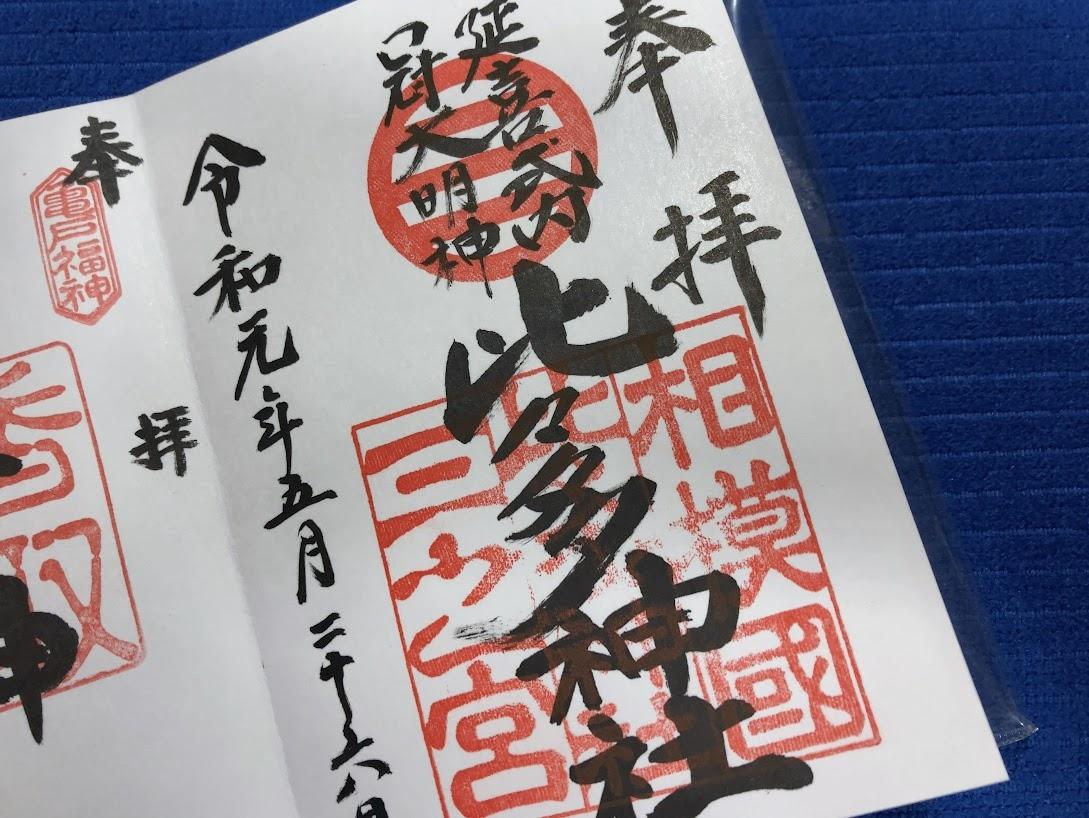 奉拝
延喜式内
冠大明神
比々多神社
相模國
三之宮
令和元年五月二十六日
奉拝
亀戸福神
香取
神